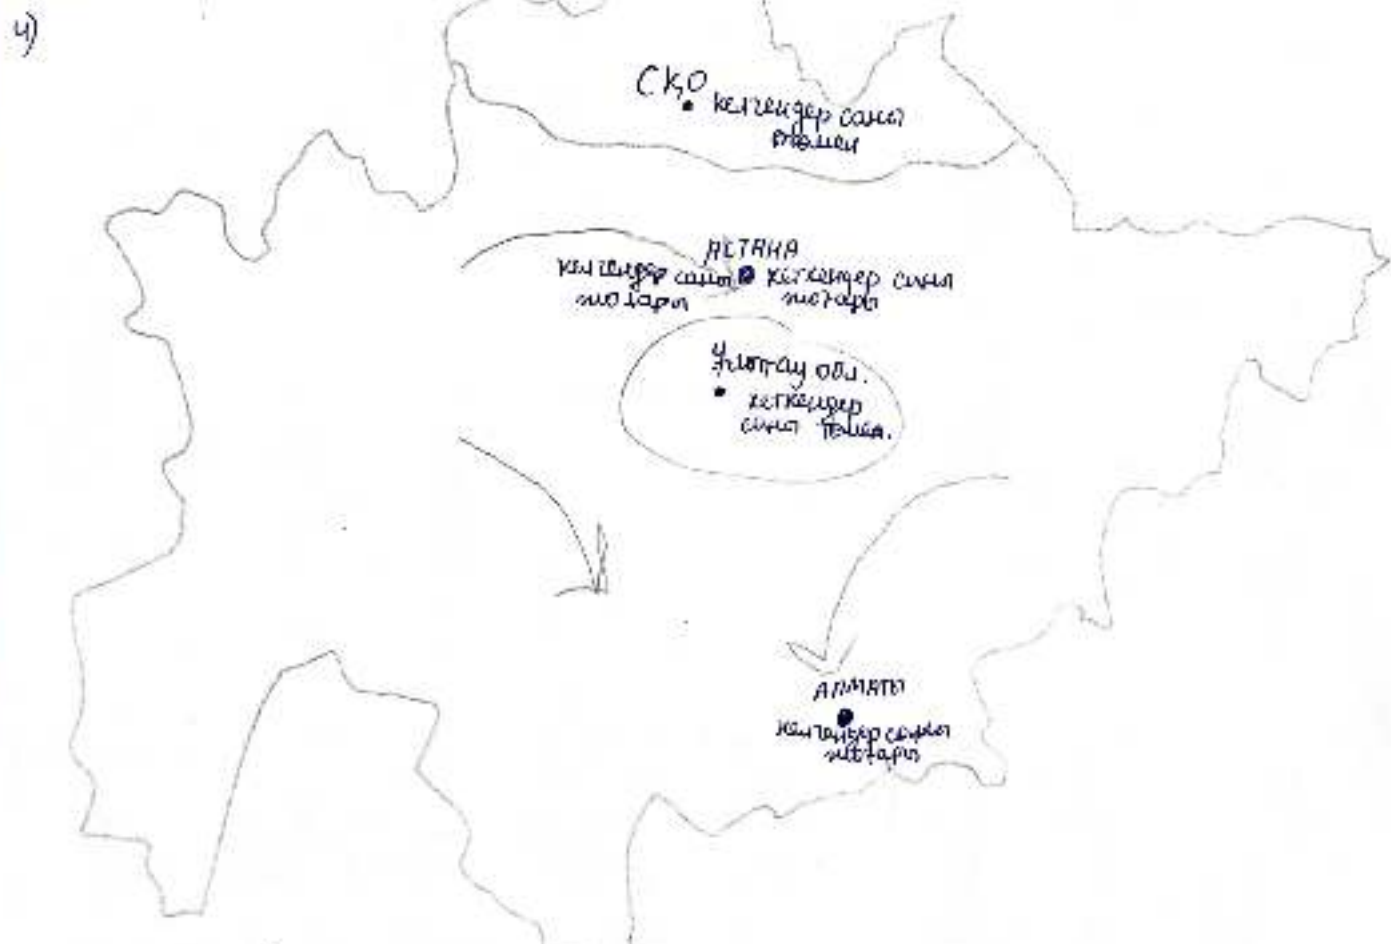 4)
СҚО
келгендер саны
төмен
АСТАНА
келгендер саны
жоғары
кеткендер саны
жоғары
Ұлытау обл.
кеткендер
саны төмен.
АЛМАТЫ
келгендер саны
жоғары